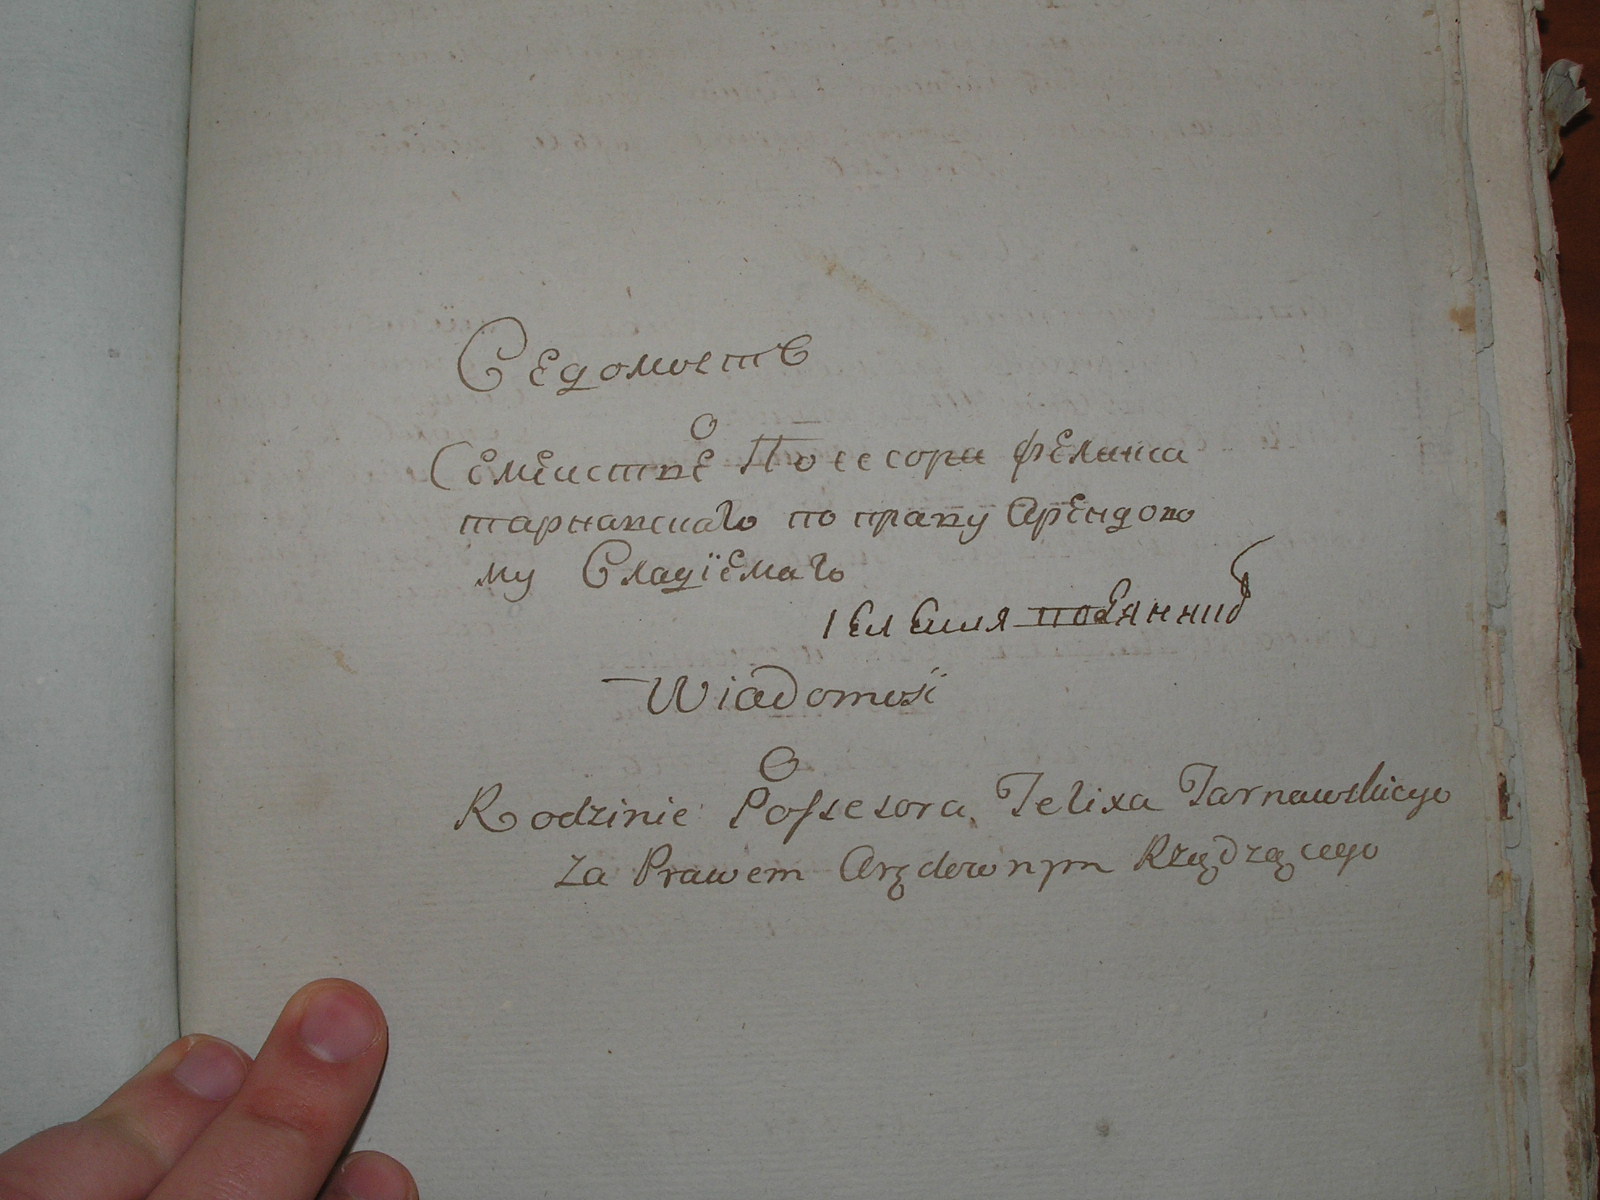 Ведомость
О
Семеистве Посесора Феликса
Тарнавскаго по праву Арендово
му Владїемаго
Wiadomość
O
Rodzinie Possesora Felixa Tarnawskiego
Za Prawem Arędownym Rządzącego